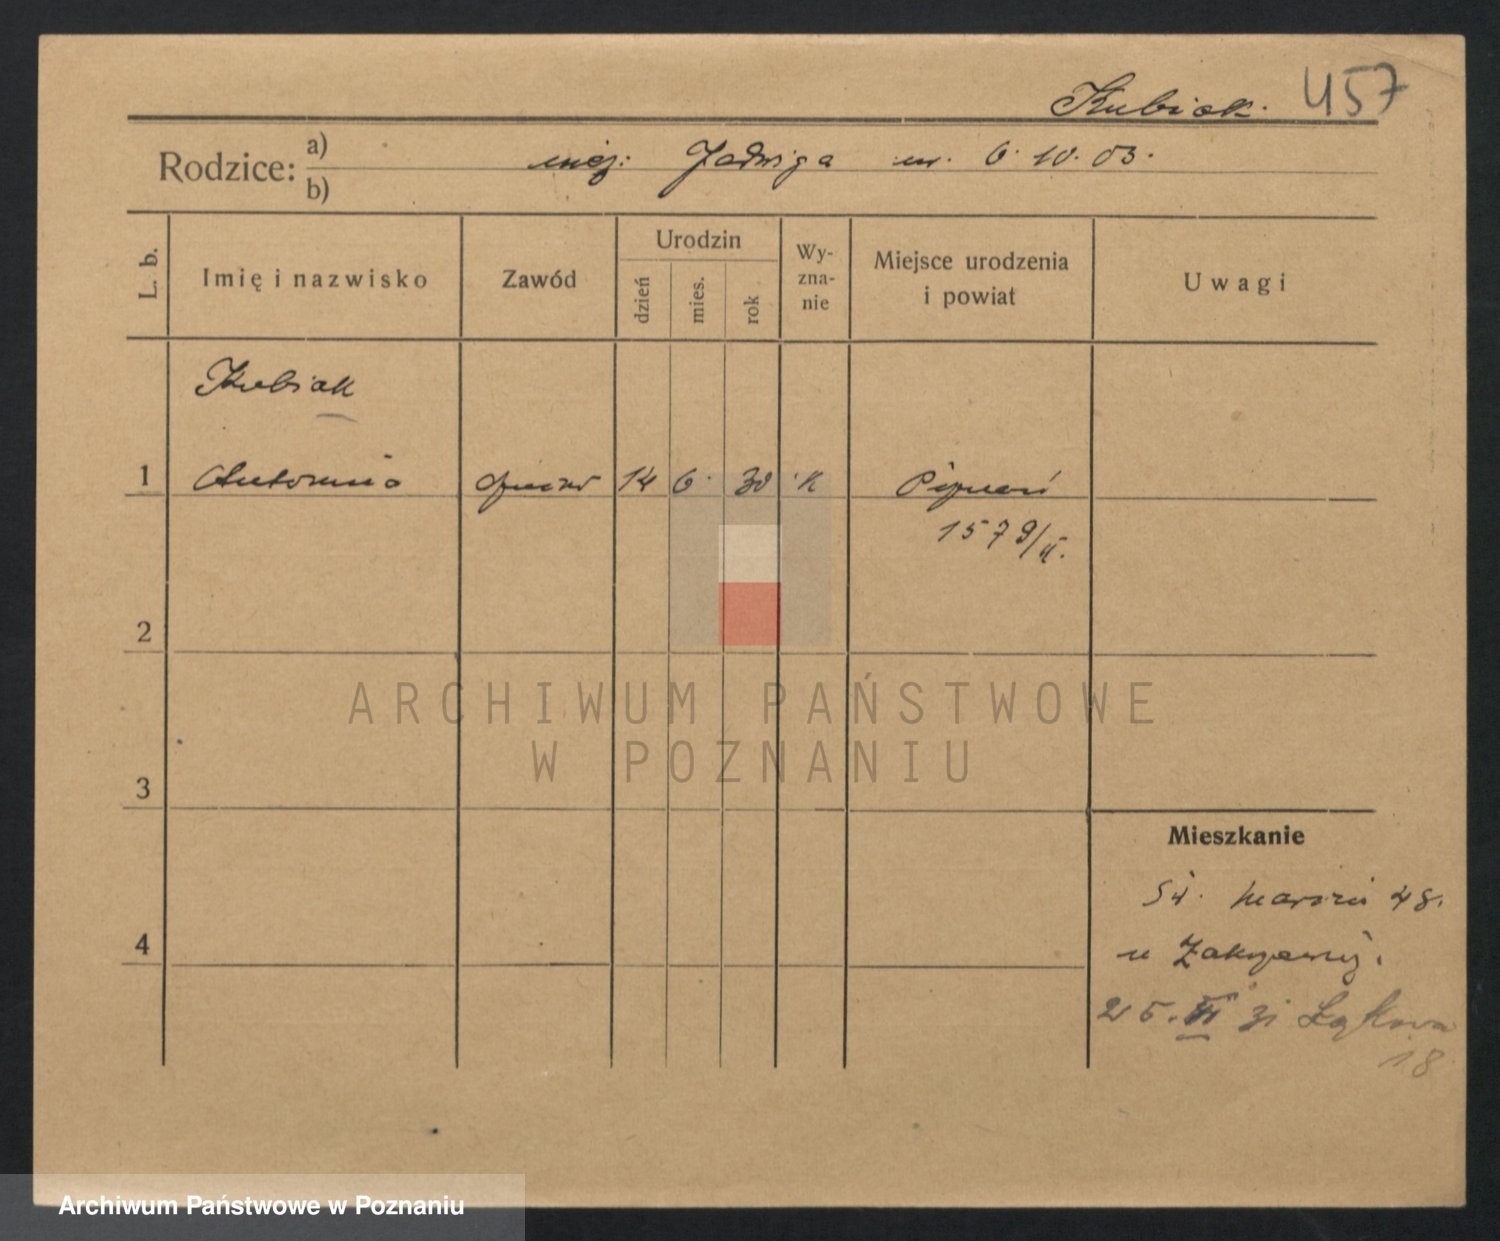 Kubiak. 457
Rodzice: a)
b)
Jadwiga ur. 6. 10. 03.
L. b.
Imię i nazwisko
Zawód
Urodzin
dzień
mies.
rok
Wy-
zna-
nie
Miejsce urodzenia
i powiat
Uwagi
Kubiak
1 Antonina 14 6. 30 k
1579/II.
2
ARCHIWUM PAŃSTWOWE
W POZNANIU
3
Mieszkanie
Św. Marcin 48.
4
25. VI Łąkowa
18
Archiwum Państwowe w Poznaniu